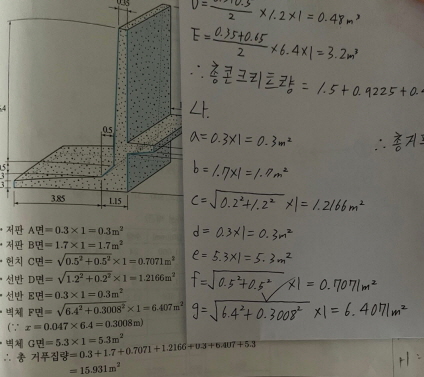 0.35
0.5
3.85
1.15
• 저판 A면=0.3×1=0.3m²
• 저판 B면=1.7×1=1.7m²
• 헌치 C면=√0.5²+0.5²×1=0.7071m²
• 선반 D면=√1.2²+0.2²×1=1.2166m²
• 선반 E면=0.3×1=0.3m²
• 벽체 F면=√6.4²+0.3008²×1=6.407m²
(∵ x=0.047×6.4=0.3008m)
• 벽체 G면=5.3×1=5.3m²
∴ 총 거푸집량=0.3+1.7+0.7071+1.2166+0.3+6.407+5.3
=15.931m²
2 ×1.2×1=0.48m³
E=0.35+0.65/2 ×6.4×1=3.2m³
∴ 총콘크리트량 = 1.5+0.9225+0.4
나.
a=0.3×1=0.3m²
∴ 총거푸
b=1.7×1=1.7m²
c=√0.2²+1.2² ×1=1.2166m²
d=0.3×1=0.3m²
e=5.3×1=5.3m²
f=√0.5²+0.5² ×1=0.7071m²
g=√6.4²+0.3008² ×1=6.4071m²